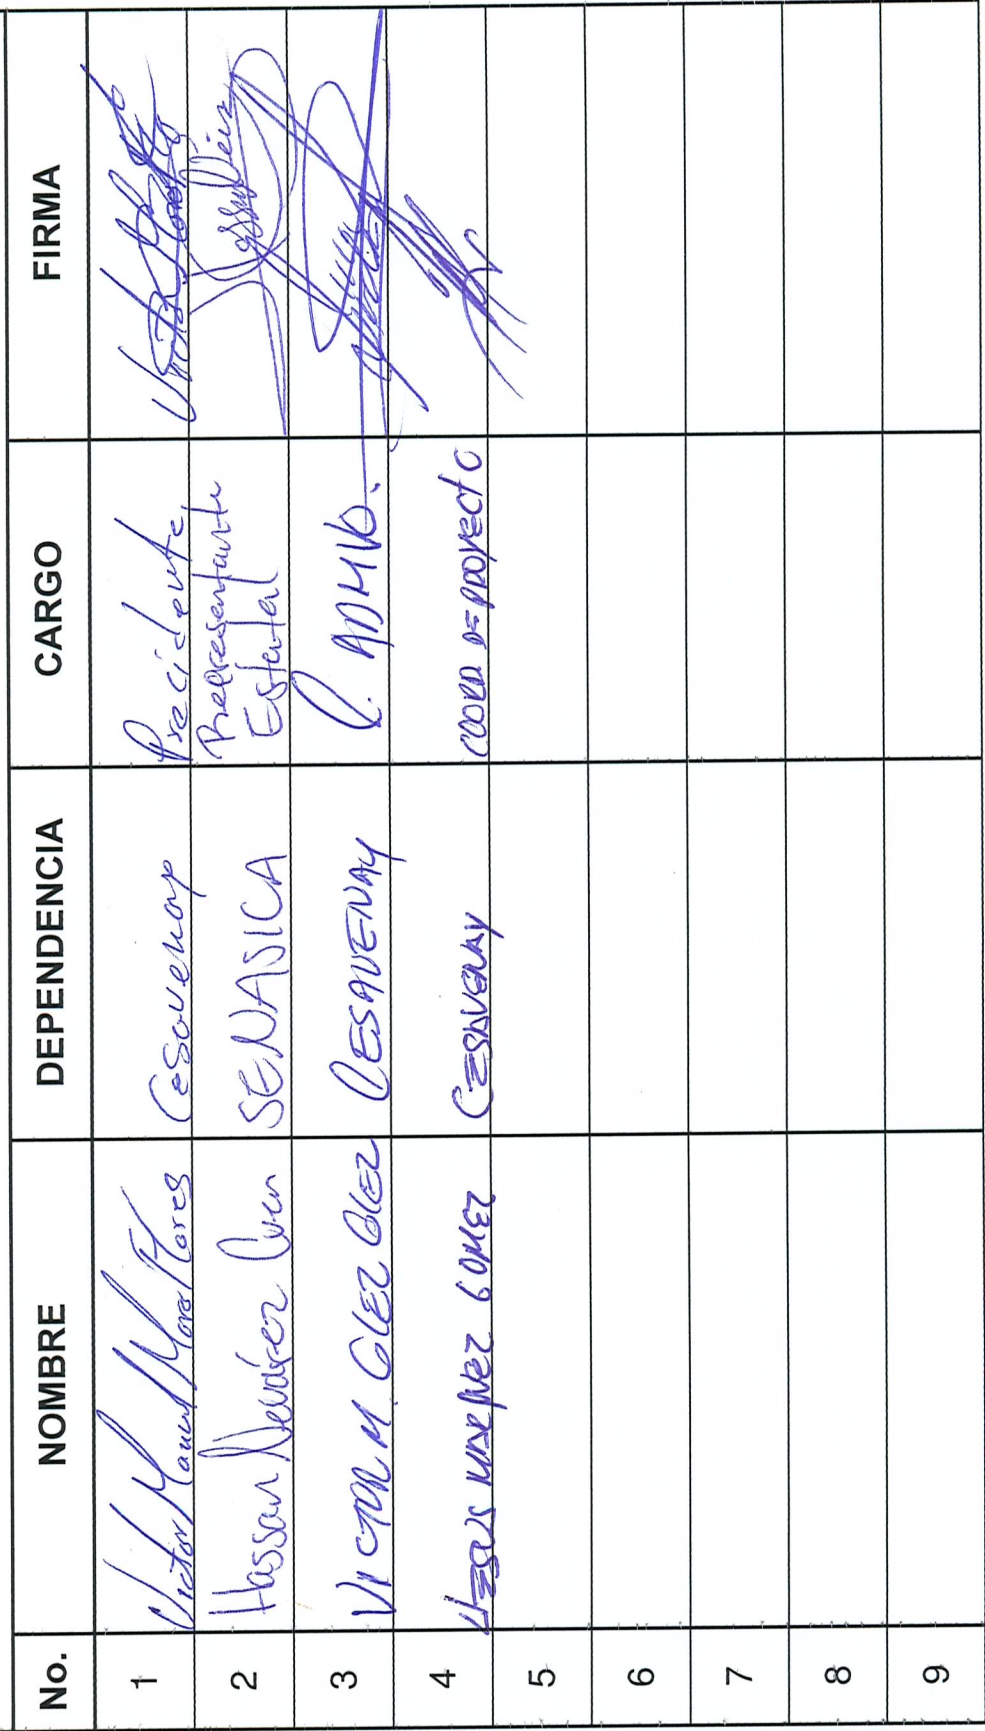 No. NOMBRE DEPENDENCIA CARGO FIRMA
1 Victor Manuel Mora Flores Cesavenay Precidente
2 Hassan Nevárez SENASICA Representante
Estatal
3 VICTOR M. GLEZ GLEZ CESAVENAY C. ADMVO.
4 JESUS GOMEZ CESAVENAY COORD DE PROYECTO
5
6
7
8
9